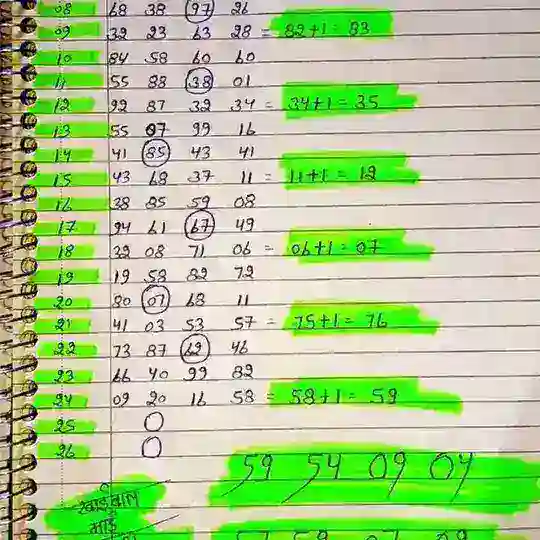 08 68 38 97 26
09 32 23 63 28 = 82+1 = 83
10 84 58 60 60
11 55 88 38 01
12 92 87 32 34 = 34+1 = 35
13 55 07 99 16
14 41 85 43 41
15 43 68 37 11 = 11+1 = 12
16 38 85 59 08
17 94 61 67 49
18 32 08 71 06 = 06+1 = 07
19 19 58 82 72
20 80 07 68 11
21 41 03 53 57 = 75+1 = 76
22 73 87 62 46
23 66 40 99 82
24 09 20 16 58 = 58+1 = 59
25 O
26 O
59 54 09 04
खाईवाल
भाई
57 59 07 09